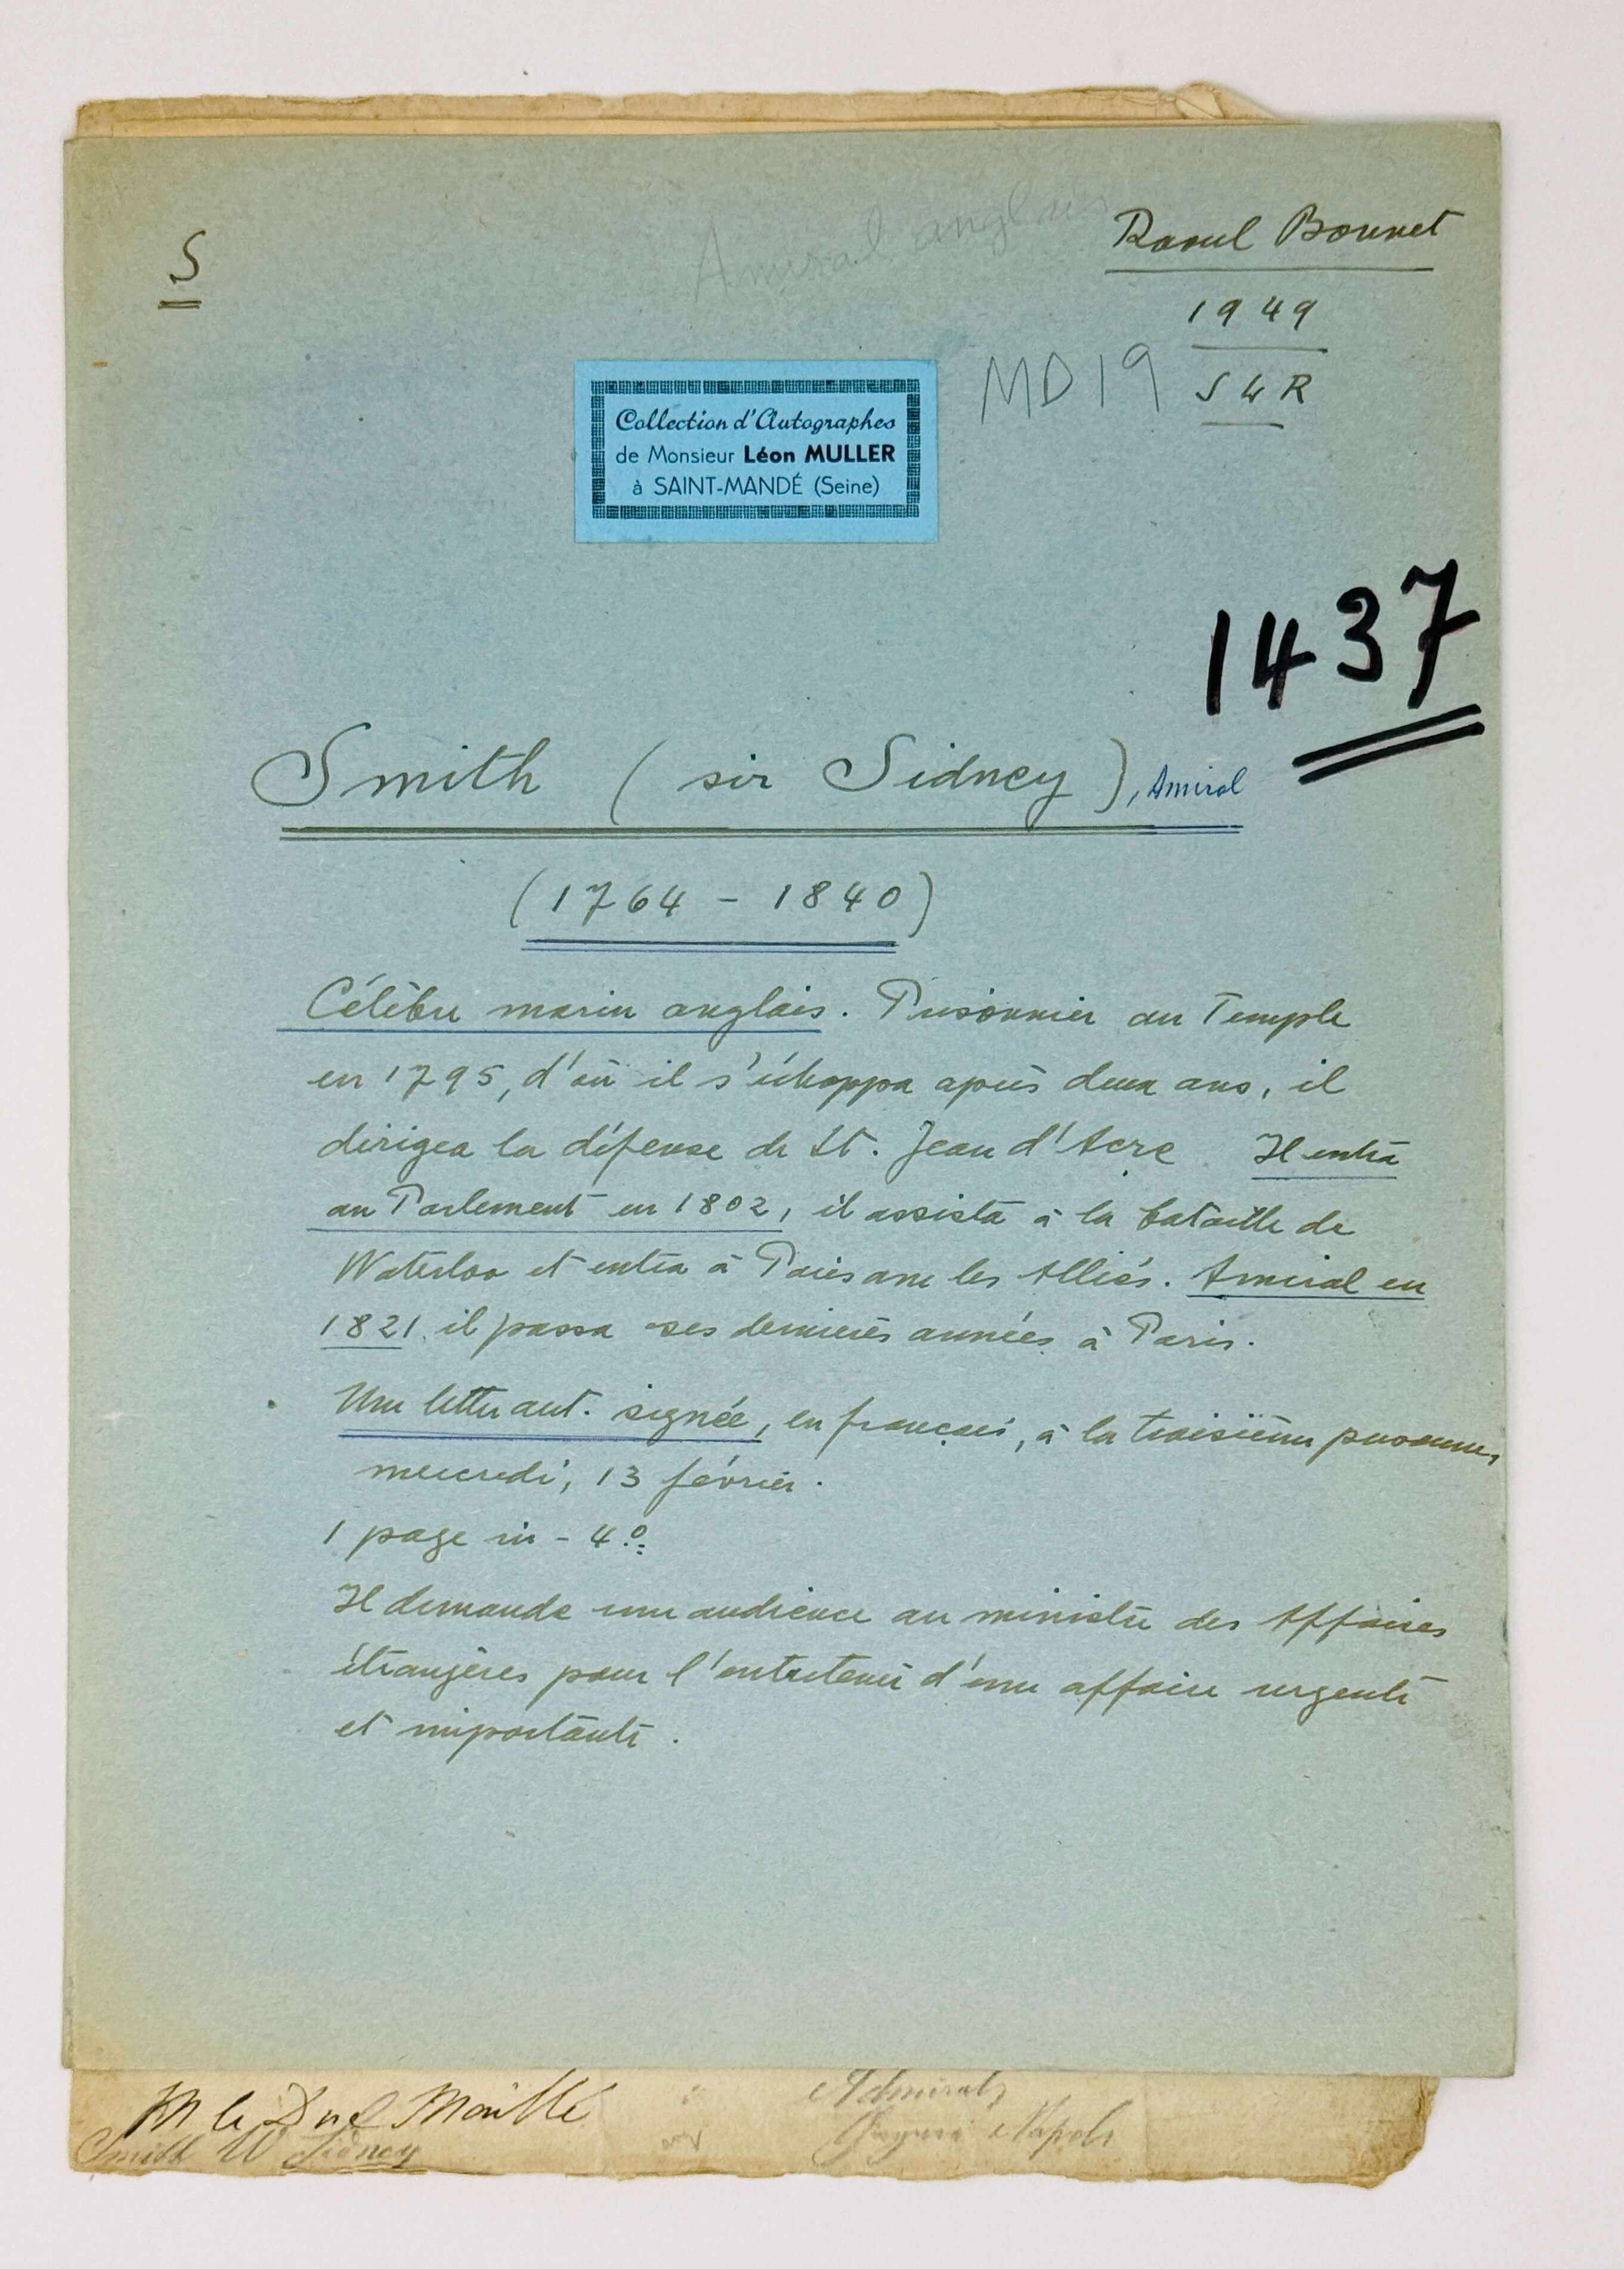 Amiral anglais
S
Raoul Bonnet
1949
MD19
S W R
Collection d'Autographes
de Monsieur Léon MULLER
à SAINT-MANDÉ (Seine)
1437
Smith (sir Sidney), Amiral
(1764 - 1840)
Célèbre marin anglais. Prisonnier au Temple
en 1795, d'où il s'échappa après deux ans, il
dirigea la défense de St. Jean d'Acre Il entra
au Parlement en 1802, il assista à la bataille de
Waterloo et entra à Paris avec les Alliés. Amiral en
1821 il passa ses dernières années à Paris.
Une lettre aut. signée, en français, à la troisième personne,
mercredi, 13 février.
1 page in-4º
Il demande une audience au ministre des Affaires
étrangères pour l'entretenir d'une affaire urgente
et importante.
M le Duc Maillé
Admiral
Smith W Sidney
ang
Napols